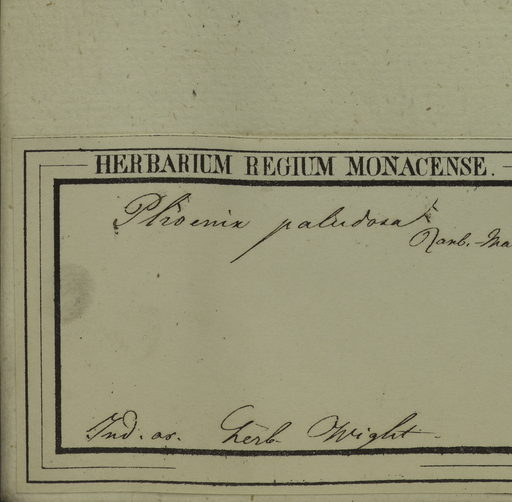 HERBARIUM REGIUM MONACENSE.
Phoenix paludosa
Ind. or. Herb. Wight